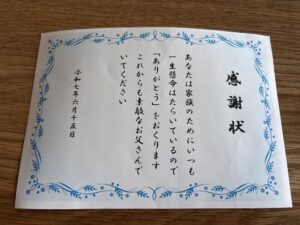 感謝状
あなたは家族のためにいつも
一生懸命はたらいているので
「ありがとう」をおくります
これからも素敵なお父さんで
いてください
令和七年六月十五日